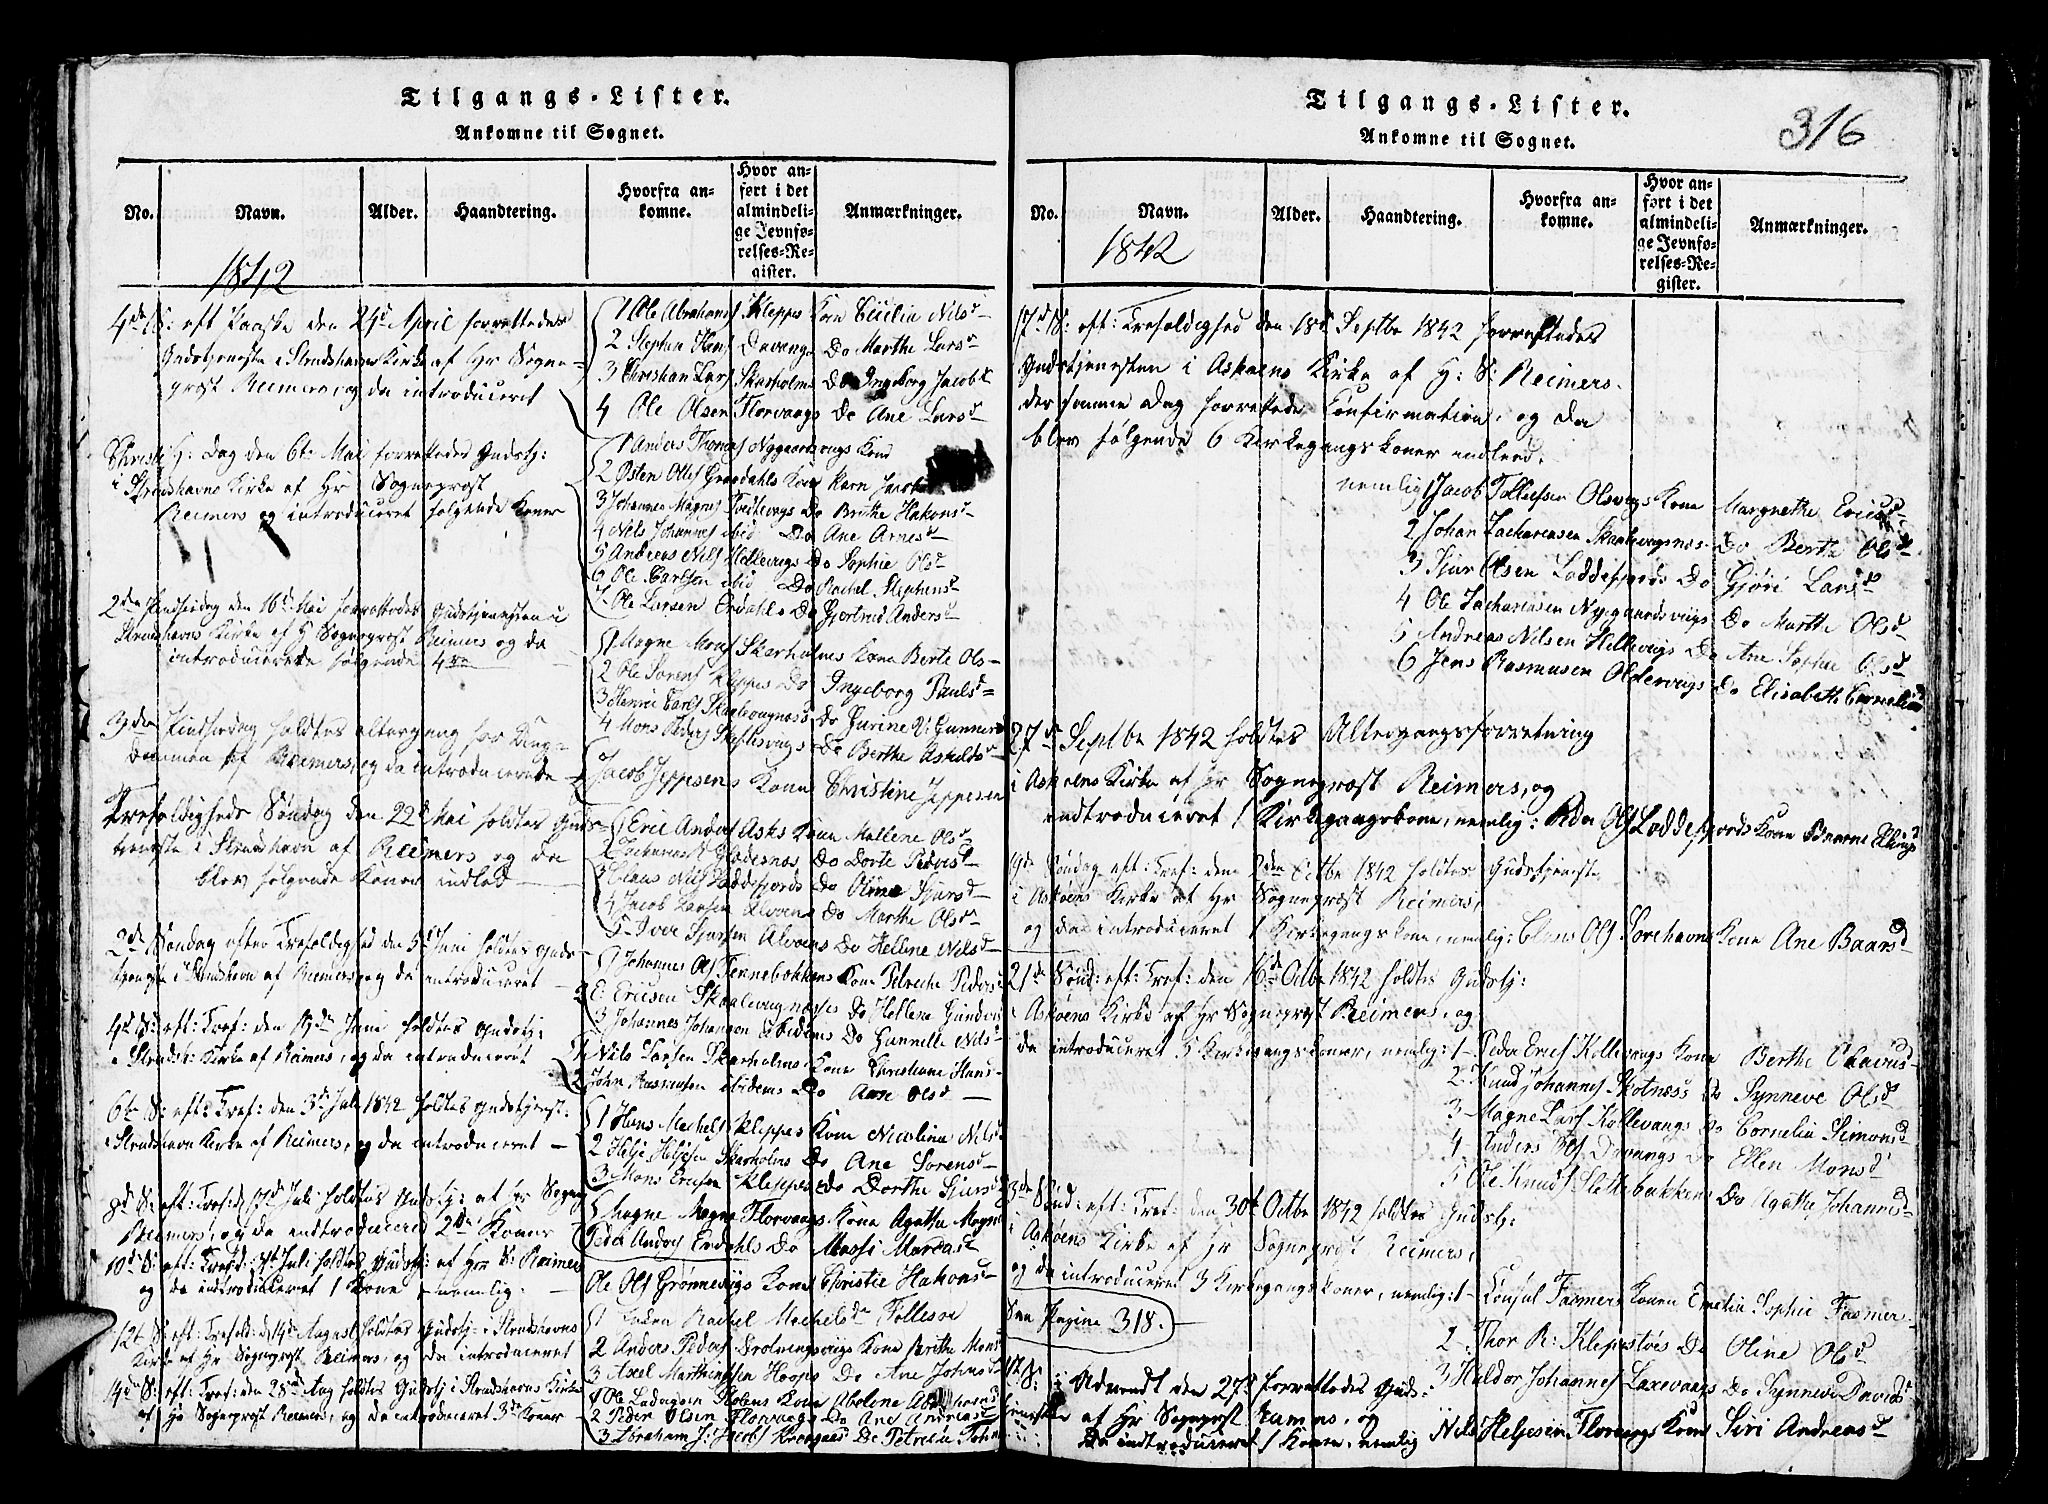 Tilgangs-Lister.
Ankomne til Sognet.
No.
Navn.
Alder.
Haandtering.
Hvorfra an-
komne.
Hvor an-
ført i det
almindeli-
ge Jevnfø-
relses-Re-
gister.
Anmærkninger.
1842
4de S: eft Paaske den 24d April forrettedes
Gudstjeneste i Strudshavns Kirke af Hr Sogne-
præst Reimers, og da introduceret
1 Ole Abrahams Kleppes Kone Cicilia Nilsd
2 Stephen Hans Davangs Do Marthe Larsd
3 Christian Lars Skarholms Do Ingeborg Jacobsd
4 Ole Olsen Florvaags Do Ane Larsd
Christi H: dag den 6te Mai forrettedes Gudstj:
i Strudshavns Kirke af Hr Sognepræst
Reimers og introduceret følgende Koner
1 Anders Thomas Nygaardsvigs Kone
2 Østen Olss Grøndahls Kone Karn Jacobs
3 Johannes Magnes Tvedtevigs Do Brithe Hakonsd
4 Nils Johannes ibid Do Ane Arnesd
5 Andreas Nils Hellevigs Do Sophie Olsd
6 Ole Carlsson ibid Do Rachel Stephensd
7 Ole Larsen Erdahls Do Gjertrud Andersd
2den Pindsedag den 16d Mai forrettedes Gudstjenesten i
Strudshavns Kirke af H Sognepræst Reimers og da
introducerede følgende 4re
1 Magne Mons Skarholmes Kone Berte Ols
2 Ole Sørens Kleppes Do Ingeborg Paulsd
3 Henric Carls Skaalevigness Do Gurine
4 Mons Peders Do Berthe Askilds
3den Pindsedag holdtes altergang for
af Reimers, og da introducerede
Jacob Jeppesens Kone Christine Jeppesen
Trefoldigheds Søndag den 22d Mai holdtes Guds-
tjeneste i Strudshavn af Reimers og da
blev følgende Koner indled
1 Eric Anders Asks Kone Mallene Olsd
2 Zacharias Do Dorte Pedersd
3 Claus Nils Loddefjords Do Oline Sjursd
4 Jacob Larsen Alvøens Do Marthe Olsd
5 Iver Sjursen Alvøens Do Hellene Nilsd
2d Søndag efter Trefoldighed den 5d Juni holdtes Guds-
tjeneste i Strudshavn af Reimers og da introduceret
1 Johannes Ols Tennebekkens Kone Petreche Peders
2 E: Ericsen Skaalevignesses Do Hellena Gunders
3 Johannes Johanson Ibidems Do Gunnelle Nils
4d S: eft: Tref: den 19de Juni holdtes Gudstj:
i Strudsh: Kirke af Reimers, og da introduceret
1 Nils Larsen Skarholms Kone Christiane Hans
2 John Rasmusen ibidems Do Ane Olsd
6te S: eft: Tref: den 3de Juli 1842 holdtes Gudstjenst:
i Strudshavn Kirke af Reimers, og da introduceret
1 Hans Mechels Kleppes Kone Nicolina Nilsd
2 Helje Heljesen Skarholms Do Ane Sørensd
3 Mons Ericsen Kleppes Do Dorthe Sjursd
8d S: eft: Tref: d 17d Juli holdtes Gudstj: af Hr Sognep
Reimers, og da introducered 2de Koner
1 Magne Magne Florvaags Kone Agatha Magne
Peder Anders Erdahls Do Massi
10d S: eft: Trefd: Juli holdtes Gudstj: af Hrr S: Reimers
og da introduceret 1 Kone nemlig:
Ole Ols Grønnevigs Kone Christie Hakonsd
12t S: eft: Trefold: d 14d August holdtes Gudstj: i Strudshavns
Kirke af Hr Sognepræst Reimers, og da introduceret
1 Rachel Mechelsd Follesøe
2 Anders Peders Drotningsvigs Kone Brithe Monsd
3 Axel Marthinssen Hoops Do Ane Johnsd
14d S: eft: Tref: den 28de Aug holdtes Gudstj i Strudshavns Kirke
af Hr Sognepræst Reimers, og da introduceret 3de Koner
1 Ole Kone Abelone
2 Peder Olsen Florvaags Do Ane Andreasd
3 Abraham J: Jacobs Do Petricia John
Tilgangs-Lister.
Ankomne til Sognet.
316
No.
Navn.
Alder.
Haandtering.
Hvorfra an-
komne.
Hvor an-
ført i det
almindeli-
ge Jevnfø-
relses-Re-
gister.
Anmærkninger.
1842
17d S: eft: Trefoldighed den 18d Septbr 1842 forrettedes
Gudstjenesten i Askøens Kirke af H: S: Reimers.
der samme dag forrettede Confirmation, og da
blev følgende 6 Kirkegangskoner indleed.
nemlig 1 Jacob Tollefsen Olsvigs Kone Margrethe Ericsd
2 Johan Zachariasen Skaalevignes Do Berte Olsd
3 Sjur Olsen Loddefjords Do Gjøri Larsd
4 Ole Zachariasen Nygaardsvigs Do Marthe Olsd
5 Andreas Nilsen Hellevigs Do Ane Sophie Olsd
6 Jens Rasmusen Oldervigs Do Elisabeth Cornelia
27de Septbr 1842 holdtes Altergangsforretning
i Askøens Kirke af Hr Sognepræst Reimers, og
indtroduceret 1 Kirkegangskone, nemlig: Peder Ols Loddefjords Kone
19de Søndag eft: Tref: den 2den Octbr 1842 holdtes Gudstjeneste
i Askøens Kirke af Hr Sognepræst Reimers,
og da introduceret 1 Kirkegangskone, nemlig: Ols Sørehavns Kone Ane Baarsd
21de Sønd: eft: Tref: den 16de Octbr 1842 holdtes Gudstj:
i Askøens Kirke af Hr Sognepræst Reimers, og
da introduceret 5 Kirkegangskoner, nemlig: 1 Peder Erics Kollevaags Kone Berthe
2 Knud Johannes Skotness Do Synneve Olsd
3 Magne Lars Kollevaags Do Cornelia Simonsd
4 Anders Ols Davangs Do Ellen Monsd
5 Ole Knuds Slettebakkens Do Agathe Johannesd
23de Sønd: eft: Tref: den 30t Octbr 1842 holdtes Gudstj:
i Askøens Kirke af Hr Sognepræst Reimers,
og da introduceret 3 Kirkegangskoner, nemlig: 1 Consul Fasmers Konen Emilia Sophie Fasmer
2 Thor R: Kleppestøes Do Oline Olsd
3 Haldor Johannes Laxevaags Do Synneve Davidsd
See Pagina 318.
1te S: i Advendt den 27d forrettedes Guds-
tjeneste af Hr Sognepræst, og
Da indtroduceret 1 Kone, nemlig Nils Heljesen Florvaags Kone Siri Andreasd